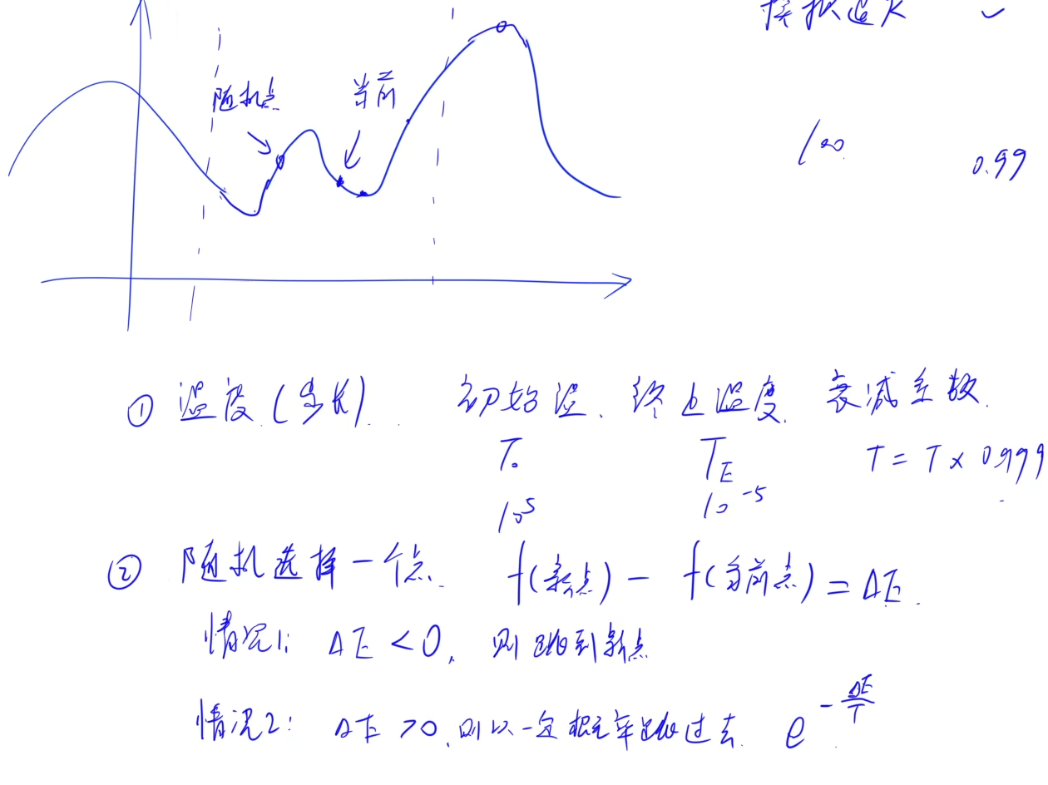 模拟退火
随机点 当前
100 0.99
① 温度(步长). 初始温、终止温度、衰减系数.
T₀ T_E T = T × 0.999
10⁵ 10⁻⁵
② 随机选择一个点. f(新点) - f(当前点) = ΔE.
情况1: ΔE < 0, 则跳到新点
情况2: ΔE > 0, 则以一定概率跳过去. e^{-ΔE/T}